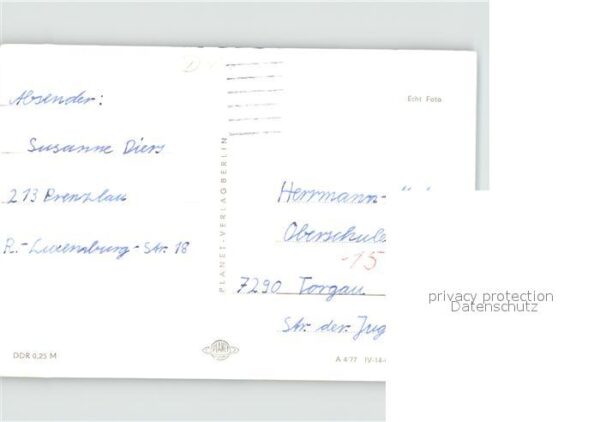 Absender:
Susanne Diers
213 Prenzlau
R.-Luxemburg-Str. 18
PLANET-VERLAG BERLIN
Echt Foto
Herrmann-
Oberschule
-15
7290 Torgau
Str. der Jug
DDR 0,25 M
PLANET
A 4/77 IV-14-
privacy protection
Datenschutz